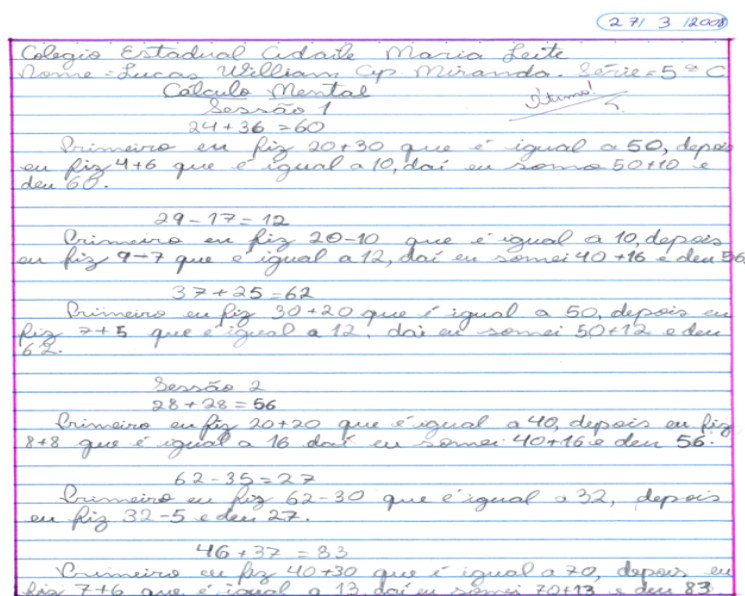 27/ 3 /2008
Colegio Estadual Cidaile Maria Leite
Nome = Lucas William Cyp. Miranda. Série = 5ª C
Cálculo Mental
Ótimo!
Sessão 1
24+36 = 60
Primeiro eu fiz 20+30 que é igual a 50, depois
eu fiz 4+6 que é igual a 10, daí eu somo 50+10 e
deu 60.
29-17=12
Primeiro eu fiz 20-10 que é igual a 10, depois
eu fiz 9-7 que é igual a 12, daí eu somei 40+16 e deu 56
37+25=62
Primeiro eu fiz 30+20 que é igual a 50, depois eu
fiz 7+5 que é igual a 12, daí eu somei 50+12 e deu
62.
Sessão 2
28+28=56
Primeiro eu fiz 20+20 que é igual a 40, depois eu fiz
8+8 que é igual a 16 daí eu somei 40+16 e deu 56.
62-35=27
Primeiro eu fiz 62-30 que é igual a 32, depois
eu fiz 32-5 e deu 27.
46+37=83
Primeiro eu fiz 40+30 que é igual a 70, depois eu
fiz 7+6 que é igual a 13 daí eu somei 70+13 e deu 83